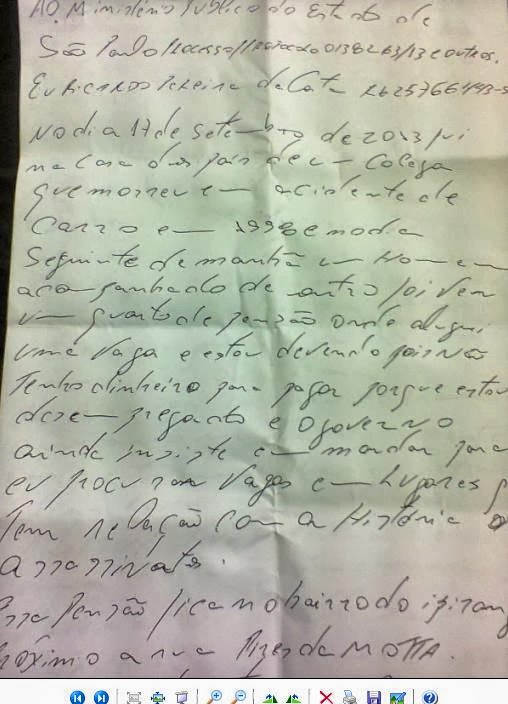 AO. Ministério Público do Estado de
São Paulo Processo/Protocolo 0138263/13 e outros.
Eu RICARDO Pereira da Costa RG 25766493-5
No dia 17 de Setembro de 2013 fui
na Casa dos pais de um Colega
que morreu em acidente de
Carro em 1998 e no dia
Seguinte de manhã um Homem
acompanhado de outro foi ver
um quarto de pensão onde aluguei
uma Vaga e estou devendo pois não
Tenho dinheiro para pagar porque estou
desempregado e o governo
ainda insiste em mandar para
eu procurar Vagas em lugares
Tem relação com a História
assassinato.
Essa Pensão fica no bairro do ipiran
próximo a rua Pires da MOTTA.